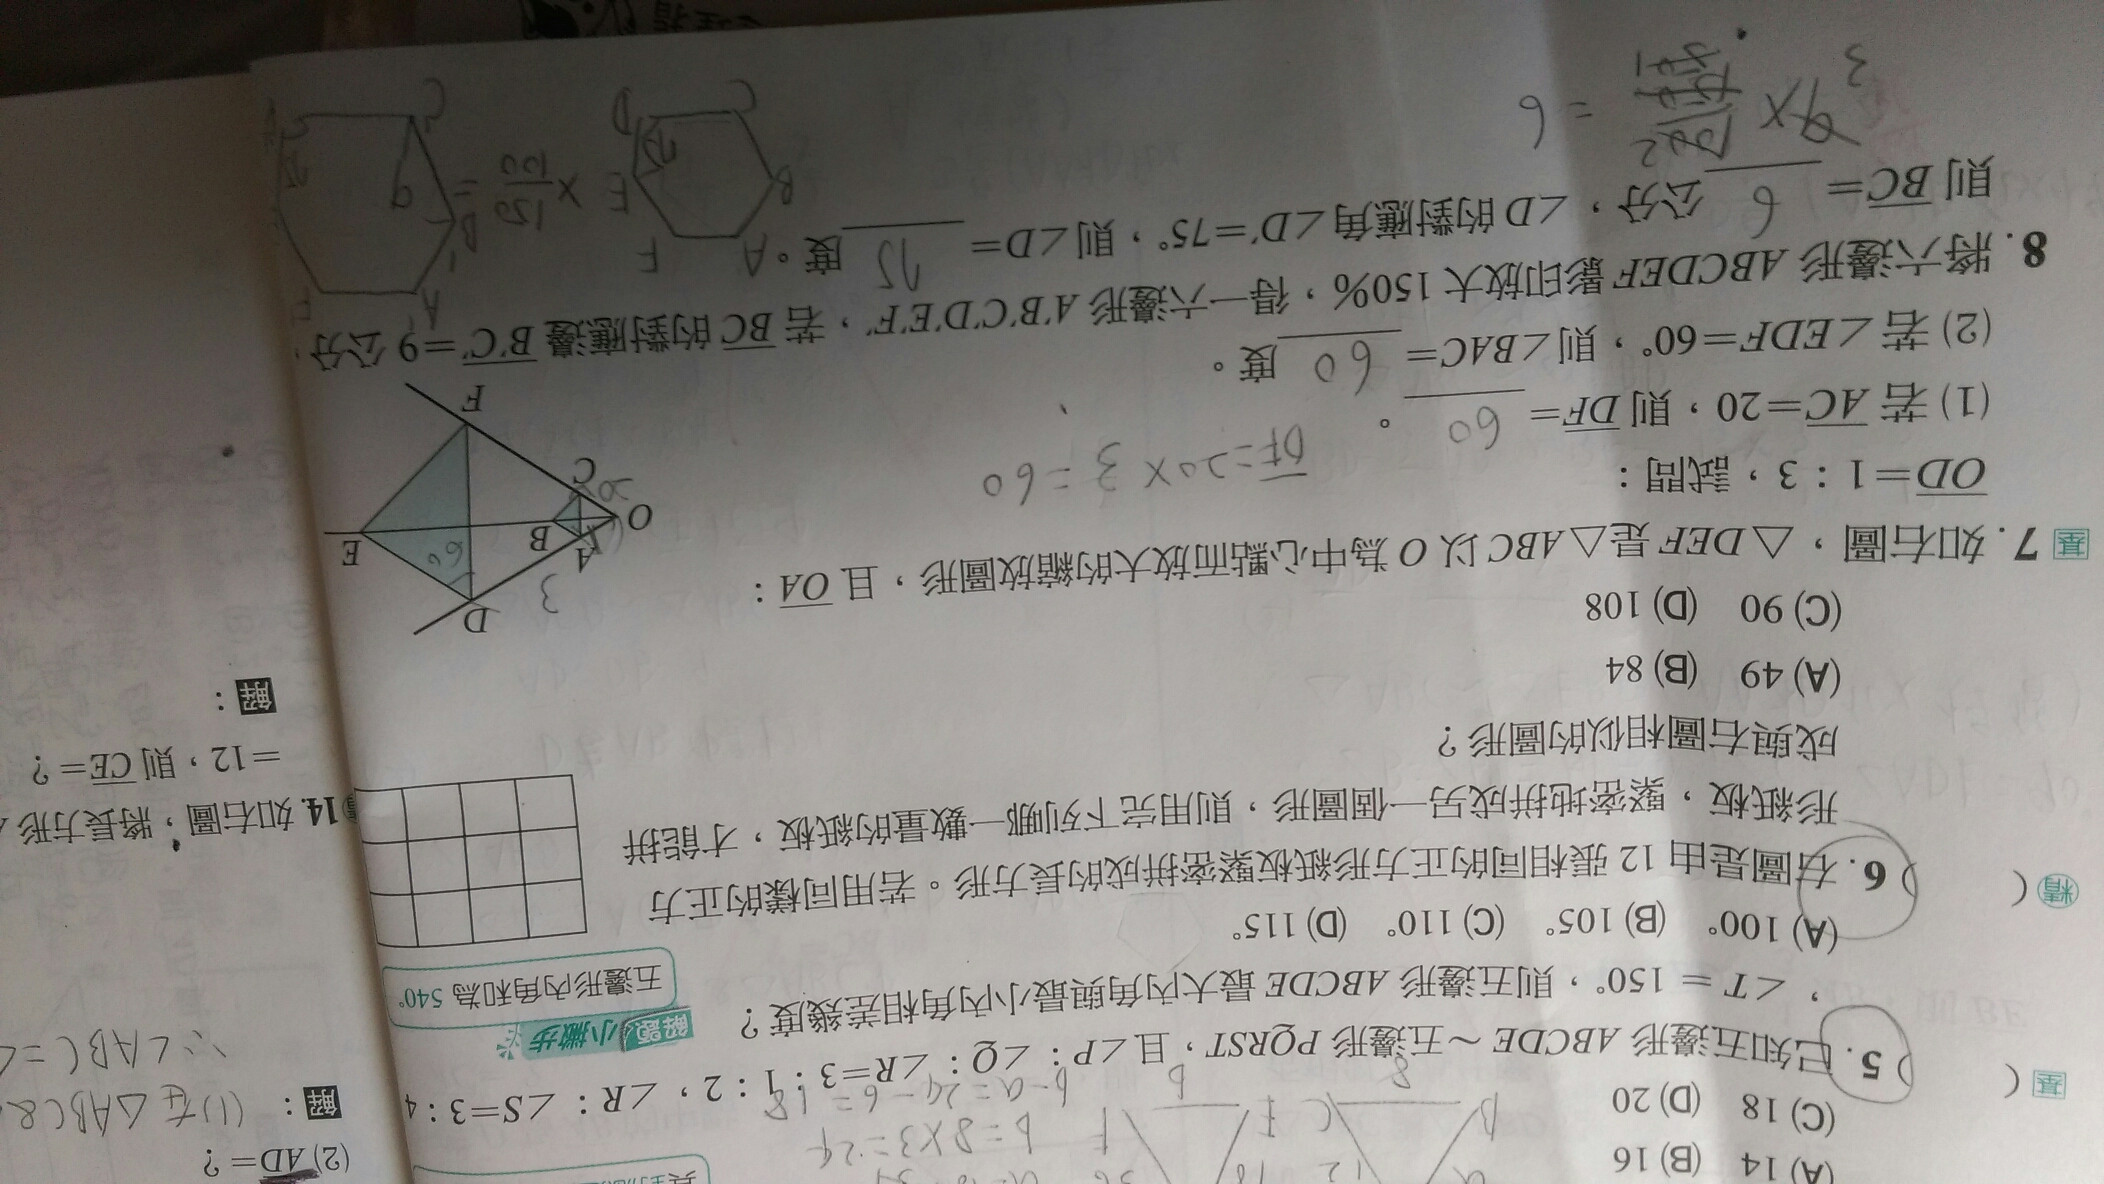 (A) 14 (B) 16
(C) 18 (D) 20
b=8×3=24
b-a=24-6=18
基 ( ) 5. 已知五邊形 ABCDE～五邊形 PQRST，且∠P：∠Q：∠R=3：1：2，∠R：∠S=3：4
，∠T = 150°，則五邊形 ABCDE 最大內角與最小內角相差幾度？
(A) 100° (B) 105° (C) 110° (D) 115°
解題 小撇步
五邊形內角和為 540°
精 ( ) 6. 右圖是由 12 張相同的正方形紙板緊密拼成的長方形。若用同樣的正方
形紙板，緊密地拼成另一個圖形，則用完下列哪一數量的紙板，才能拼
成與右圖相似的圖形？
(A) 49 (B) 84
(C) 90 (D) 108
基 7. 如右圖，△DEF 是△ABC 以 O 為中心點而放大的縮放圖形，且 OA：
OD=1：3，試問：
DF=20×3=60
(1) 若 AC=20，則 DF= 60 。
(2) 若∠EDF=60°，則∠BAC= 60 度。
D
3
A
B
E
60
O
20
C
F
8. 將六邊形 ABCDEF 影印放大 150%，得一六邊形 A'B'C'D'E'F'，若 BC 的對應邊 B'C'=9 公分，
則 BC= 6 公分，∠D 的對應角∠D'=75°，則∠D= 75 度。
A F
B E
C D
75
× 150/100 =
A' F
B'
9
C'
75
= 6
(2) AD=？
解： (1)在△ABC&
∵∠ABC=∠
14. 如右圖，將長方形
=12，則 CE=？
解：